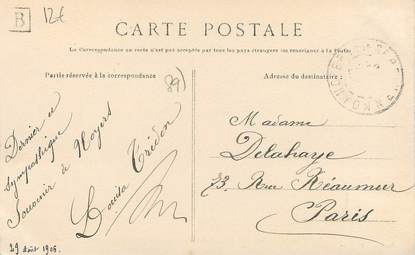 B
12€
CARTE POSTALE
La Correspondance au recto n'est pas acceptée par tous les pays étrangers (se renseigner à la Poste)
Partie réservée à la correspondance
(89)
Adresse du destinataire :
Dernier et
sympathique
souvenir à Noyers
Louisa Trédon
29 Août 1906.
Madame
Delahaye
73. Rue Réaumur
Paris